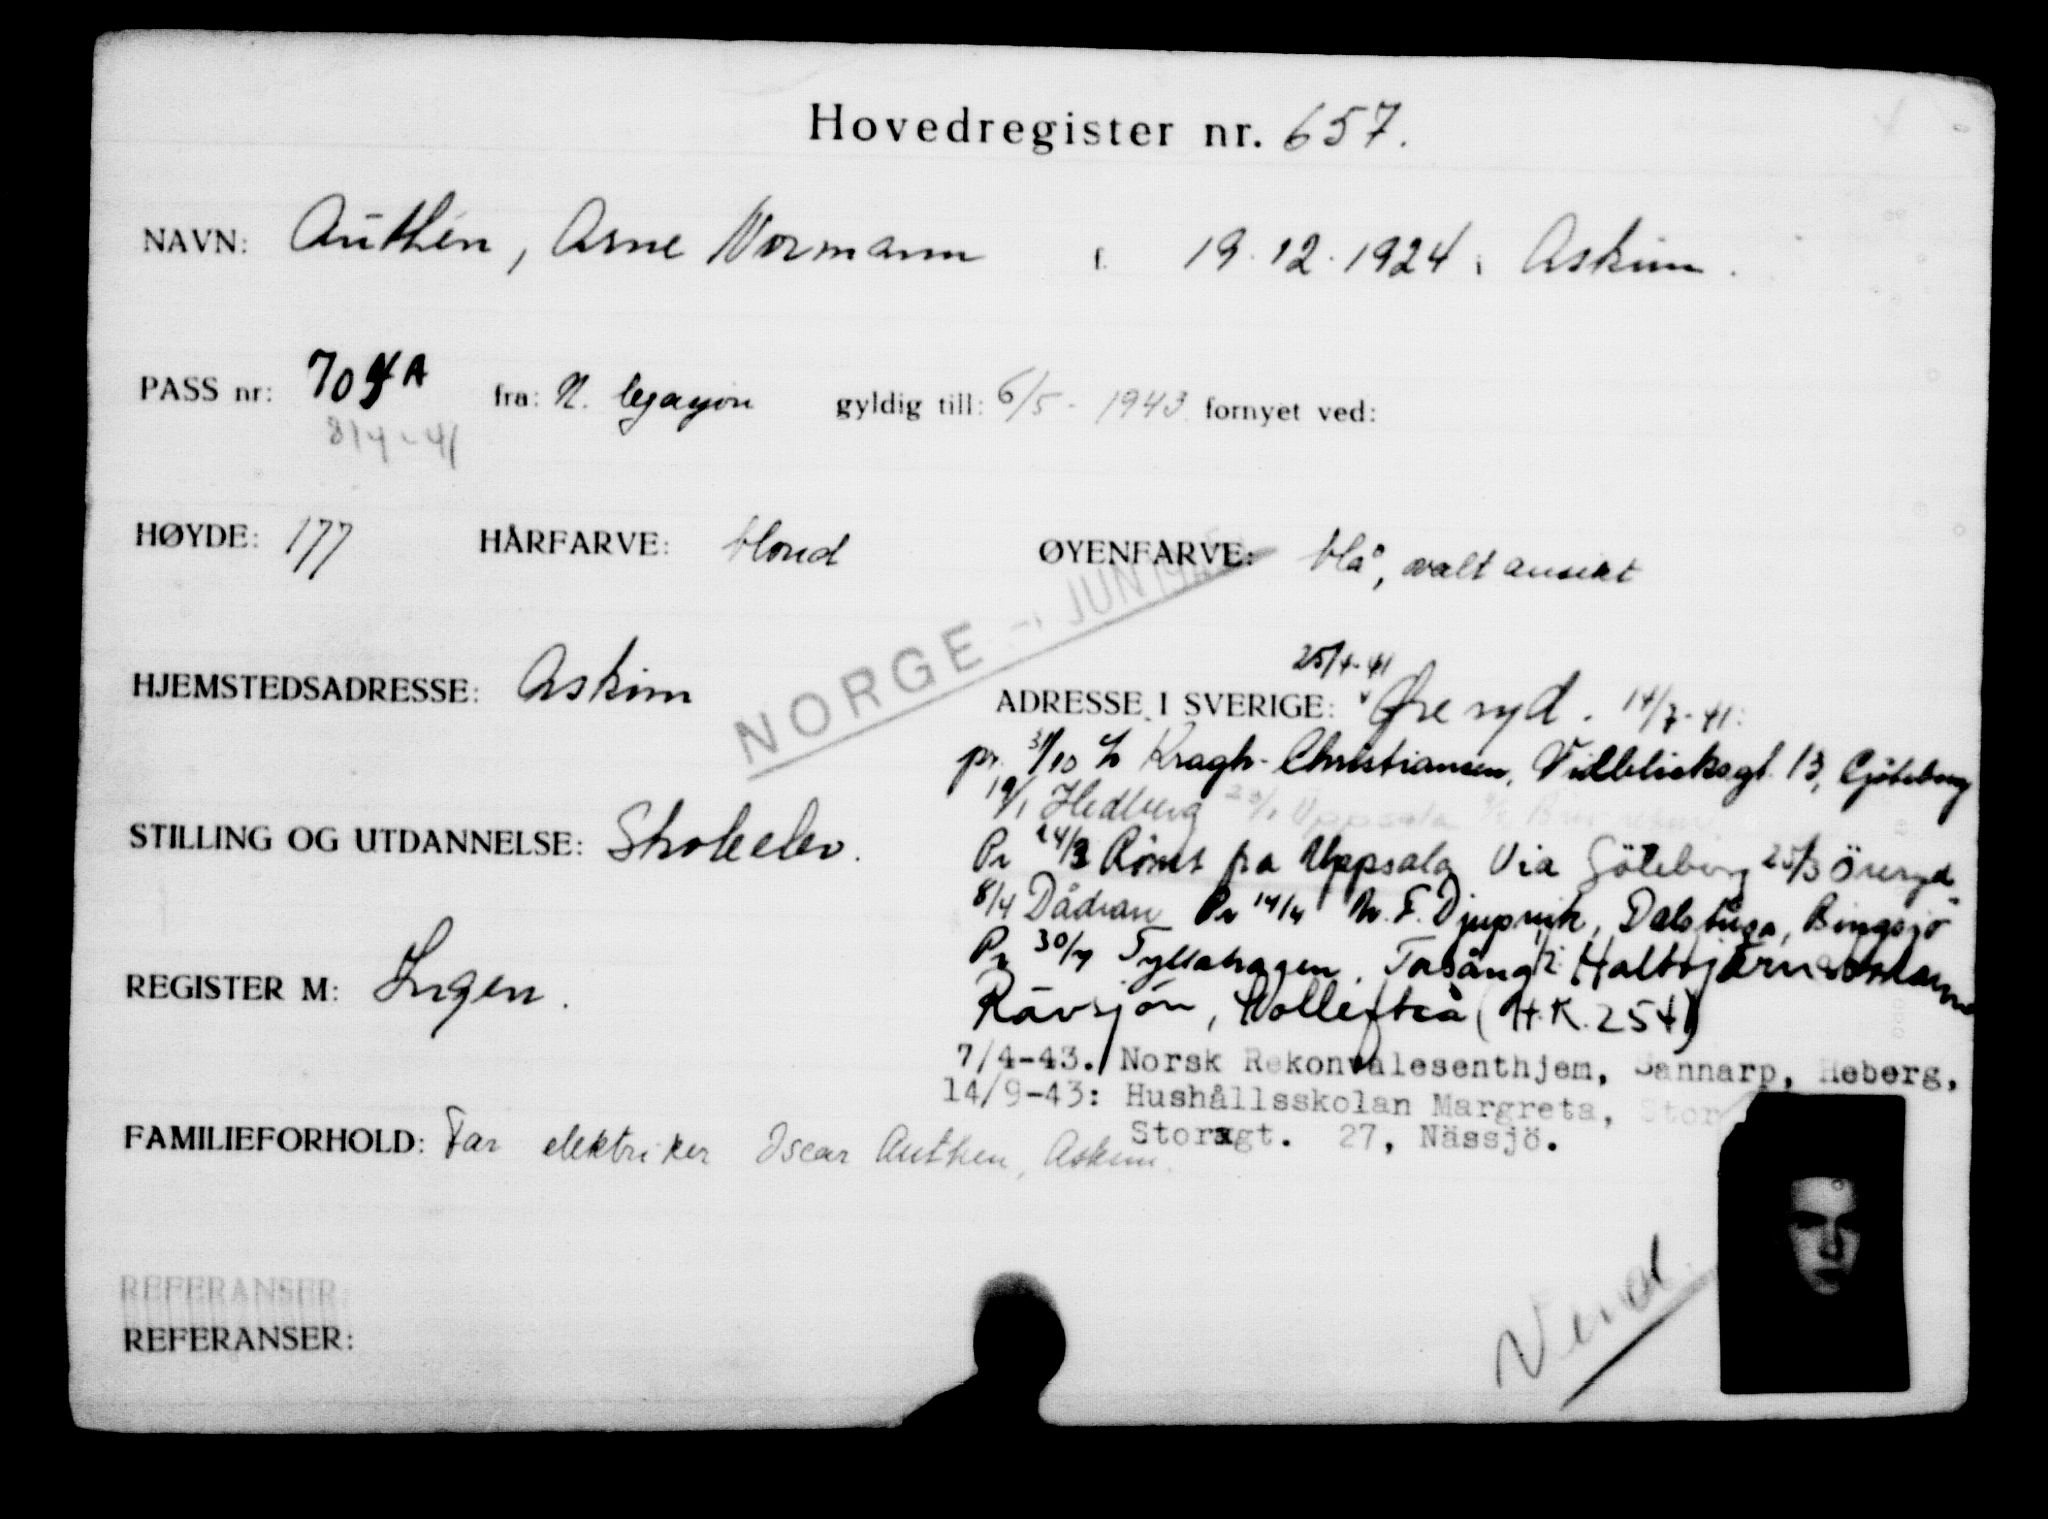 Hovedregister nr. 657.
NAVN: Authén, Arne Normann f. 19.12.1924 i Askim.
PASS nr: 704A fra: N. legasjon gyldig till: 6/5 - 1943 fornyet ved:
8/4-41
HØYDE: 177 HÅRFARVE: blond ØYENFARVE: blå, ovalt ansikt
NORGE JUN 194
25/4-41
HJEMSTEDSADRESSE: Askim ADRESSE I SVERIGE: Øreryd. 14/7-41:
pr. 31/10 Kragh-Christiansen, Vidblicksgt. 13, Gjöteborg
19/1 Hedberg 20/1 Uppsala
STILLING OG UTDANNELSE: Skoleelev.
Pr 24/3 Reist fra Uppsala via Göteborg 25/3 Öreryd
8/4 Dådran Pr 14/4 Djupvik, Dalstuga, Bingsjö
Pr 30/4 Tyllahagen, Torsång
REGISTER M: Ingen.
Rävsjön, (H.K. 254)
7/4-43. Norsk Rekonvalesenthjem, Sannarp, Heberg.
14/9-43: Hushållsskolan Margreta, Stor
Storgt. 27, Nässjö.
FAMILIEFORHOLD: Far elektriker Oscar Authen, Askim.
REFERANSER:
REFERANSER:
Vend.